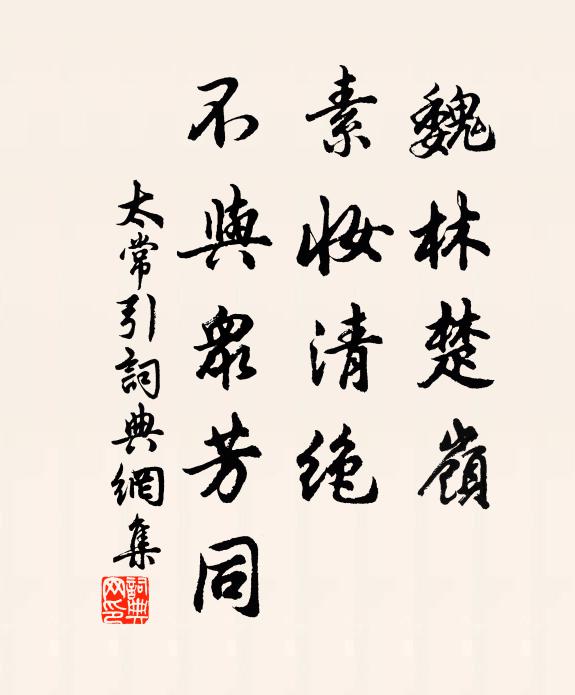 魏林楚嶺
素妝清絶
不與眾芳同
太常引詞典網集
詞典網印